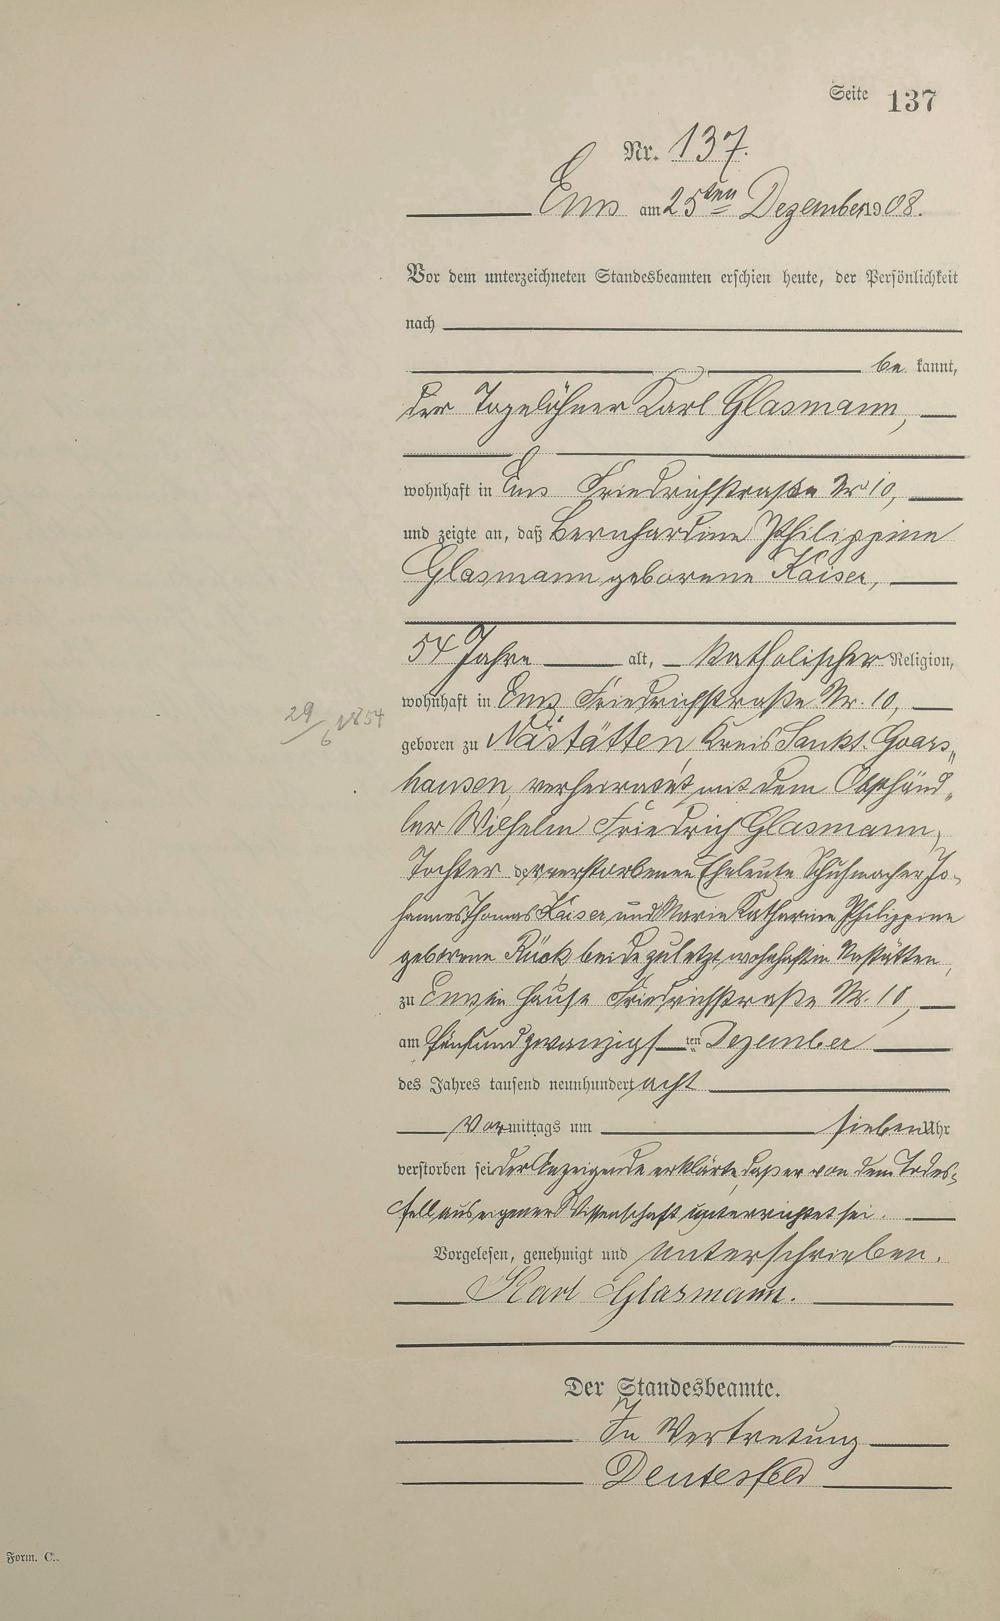 Seite 137
Nr. 137.
Ems am 25ten Dezember 1908.
Vor dem unterzeichneten Standesbeamten erschien heute, der Persönlichkeit
nach
be kannt,
der Tagelöhner Karl Glasmann,
wohnhaft in Ems Friedrichstraße Nr 10,
und zeigte an, daß Bernhardine Philippine
Glasmann geborene Kaiser,
54 Jahre alt, katholischer Religion,
wohnhaft in Ems Friedrichstraße Nr. 10,
29/6 1854
geboren zu Nastätten, Kreis Sankt. Goars„
hausen, verheiratet mit dem Obsthänd„
ler Wilhelm Friedrich Glasmann,
Tochter der verstorbenen Eheleute Schuhmacher Jo-
hannes Thomas Kaiser und Marie Katharine Philippine
geborene Rück beide zuletzt wohnhaft in Nastätten,
zu Ems in Hause Friedrichstraße Nr. 10,
am fünfundzwanzigsten Dezember
des Jahres tausend neunhundert acht
Vormittags um sieben Uhr
verstorben sei der Anzeigende erklärte, daß er von dem Todes-
fall aus eigener Wissenschaft unterrichtet sei.
Vorgelesen, genehmigt und unterschrieben.
Karl Glasmann.
Der Standesbeamte.
In Vertretung
Form. C.